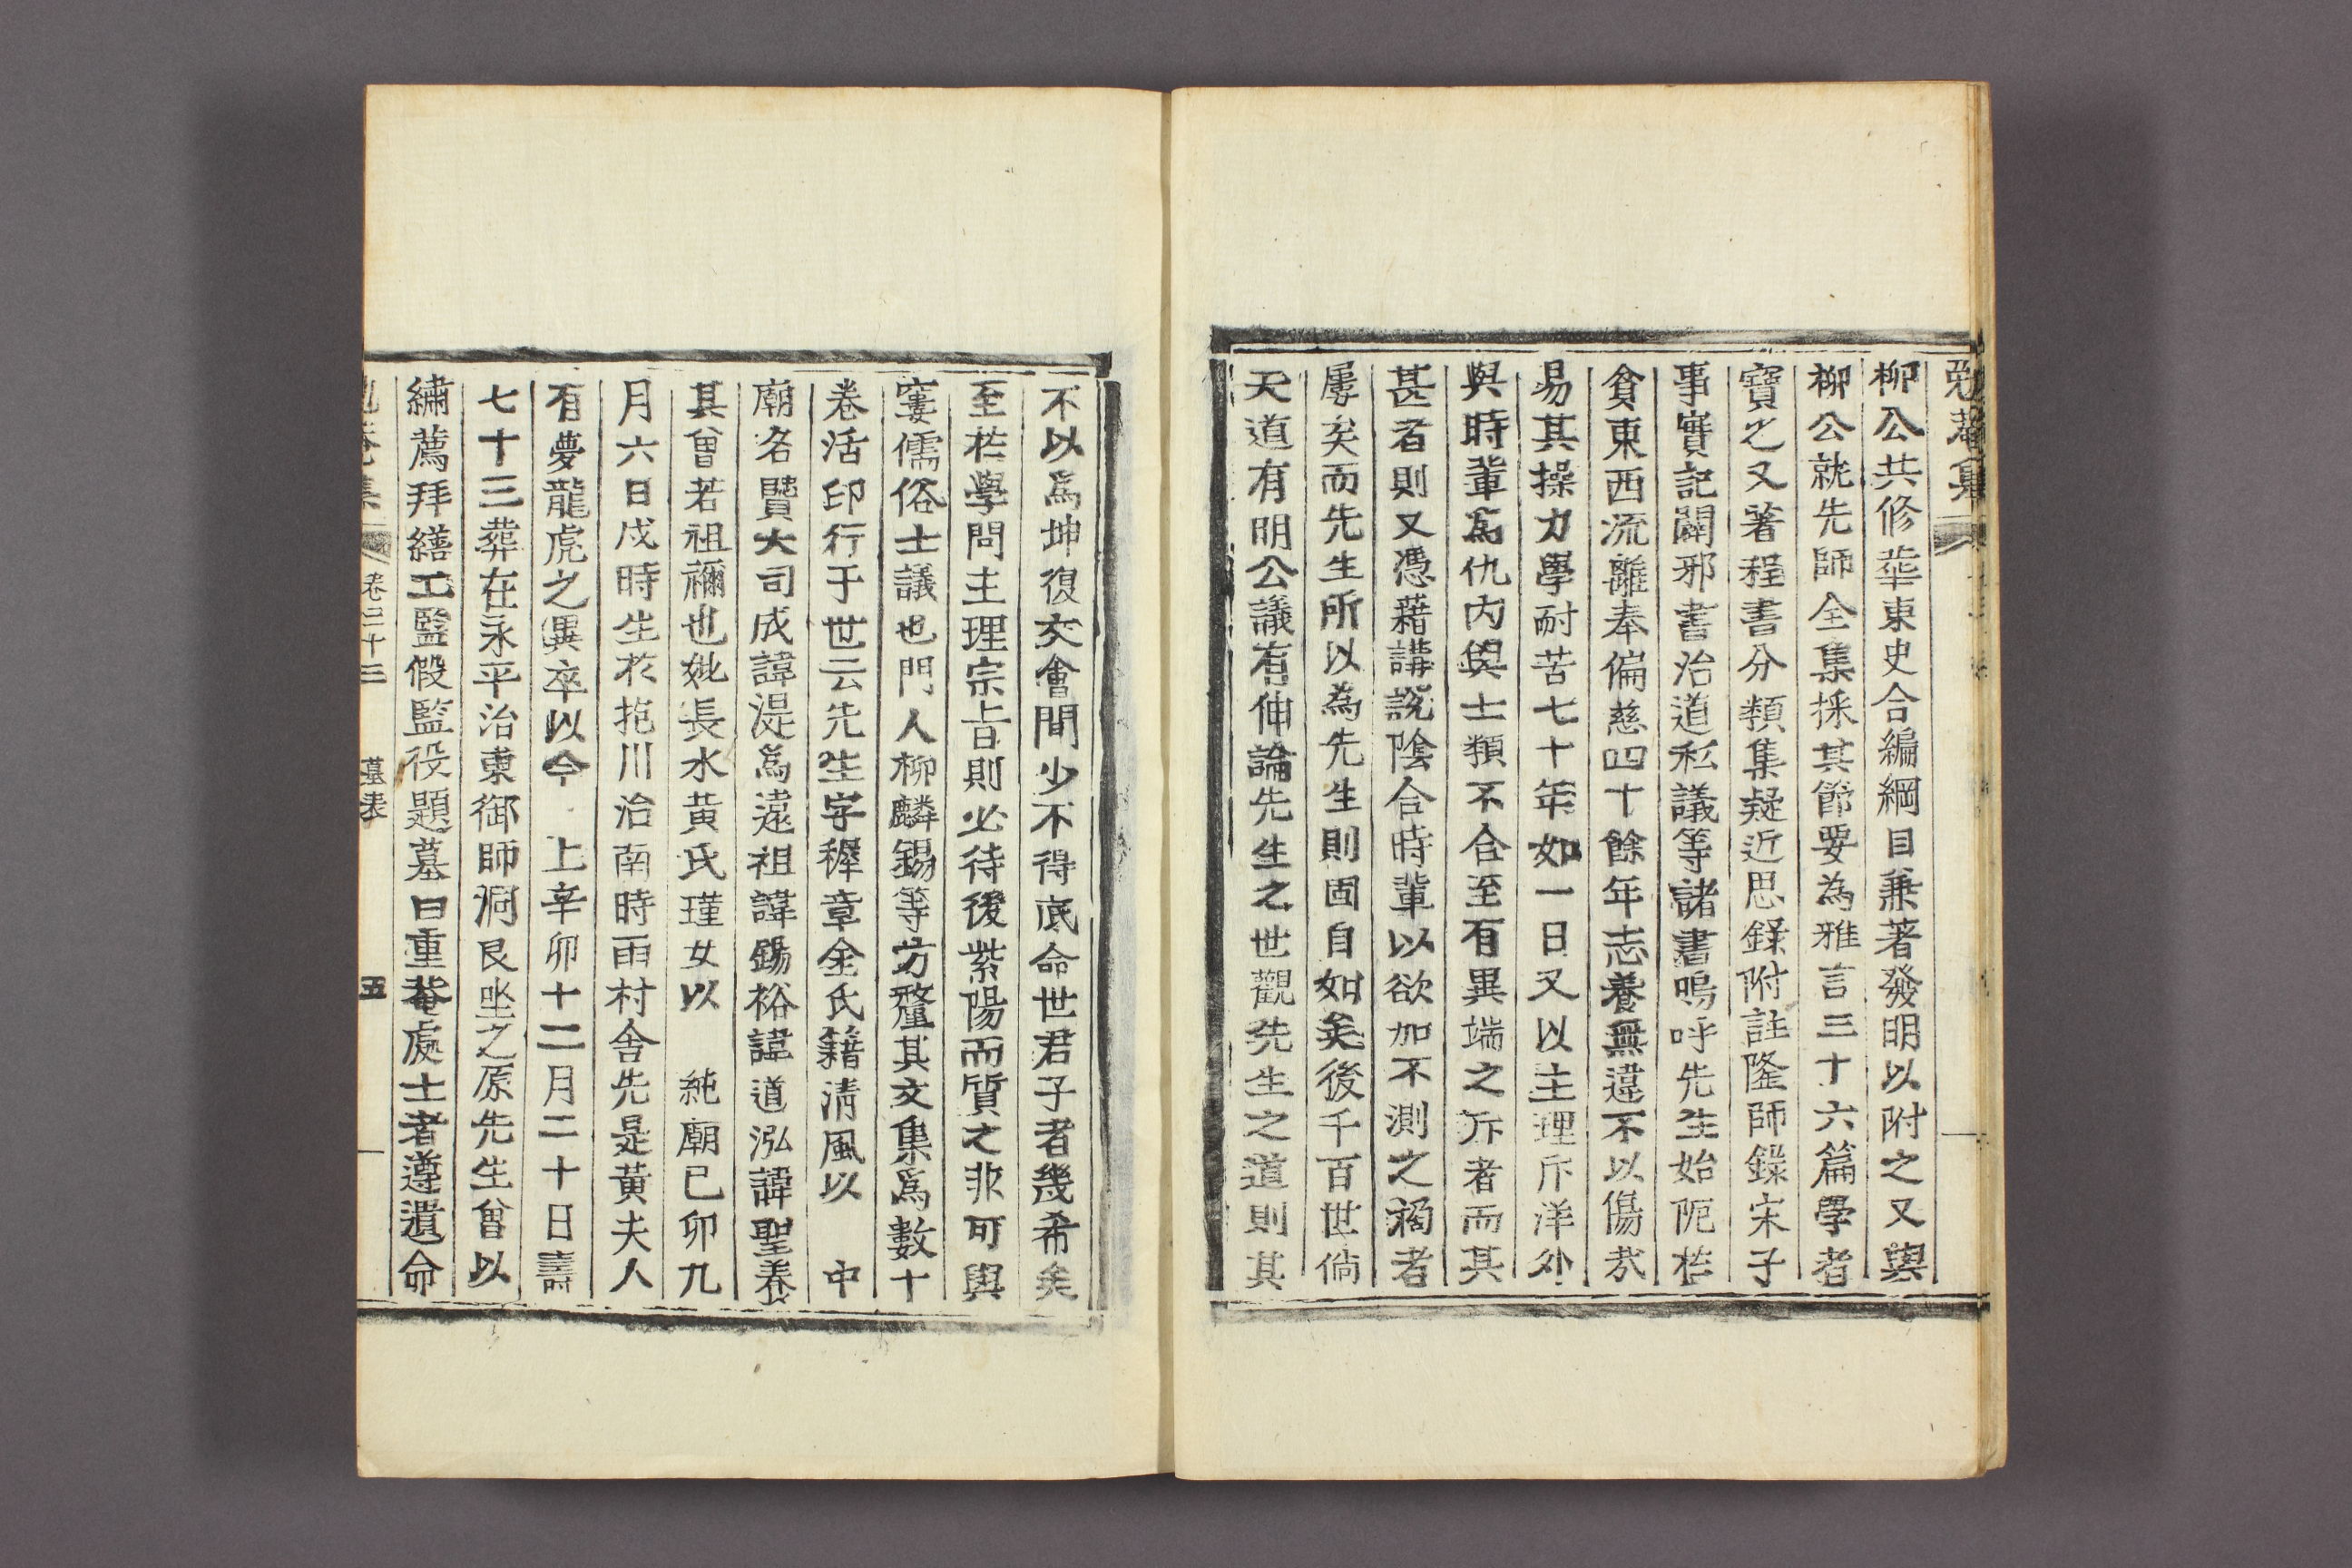 勉菴集
柳公共修華東史合編綱目兼著發明以附之又與
柳公就先師全集採其節要為雅言三十六篇學者
寶之又著程書分類集疑近思錄附註隆師錄宋子
事實記闢邪書治道私議等諸書嗚呼先生始阨於
貧東西流離奉偏慈四十餘年志養無違不以傷哀
易其操力學耐苦七十年如一日又以主理斥洋外
與時輩爲仇內與士類不合至有異端之斥者而其
甚者則又憑藉講說陰合時輩以欲加不測之禍者
屢矣而先生所以為先生則固自如矣後千百世倘
天道有明公議有伸論先生之世觀先生之道則其
不以爲坤復交會間少不得底命世君子者幾希矣
至於學問主理宗旨則必待後紫陽而質之非可與
窶儒俗士議也門人柳麟錫等方釐其文集爲數十
卷活印行于世云先生字穉章金氏籍淸風以 中
廟名賢大司成諱湜爲遠祖諱錫裕諱道泓諱聖養
其曾若祖禰也妣長水黄氏瑾女以 純廟己卯九
月六日戌時生於抱川治南時雨村舍先是黄夫人
有夢龍虎之異卒以今 上辛卯十二月二十日壽
七十三葬在永平治東御師洞艮坐之原先生曾以
繡薦拜繕工監假監役題墓曰重菴處士者遵遺命
勉菴集 卷三十三 墓表 五